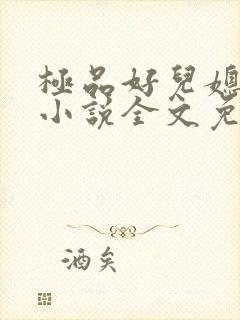 極品好兒媳
小說全文免
酒矣